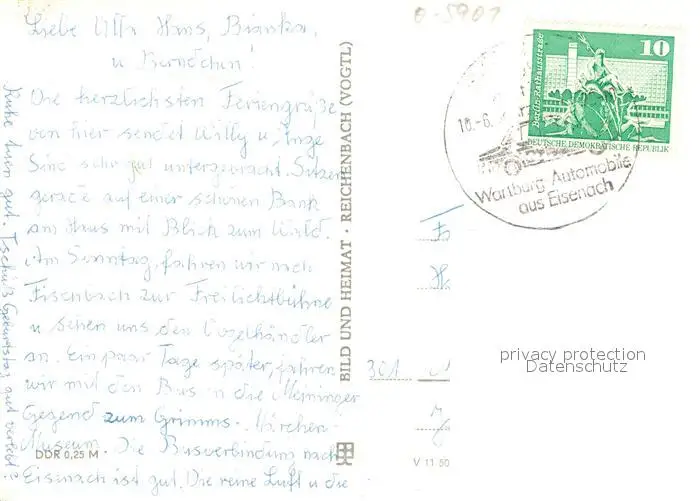 Liebe Utta Hans, Bianka,
u Berndchen!
Die herzlichsten Feriengrüße
von hier sendet Willy u. Inge
Sind sehr gut untergebracht. Sitzen
gerade auf einer schönen Bank
am Haus mit Blick zum Wald.
Am Sonntag, fahren wir nach
Fischbach zur Freilichtbühne
u sehen uns den Vogelhändler
an. Ein paar Tage später, fahren
wir mit den Bus in die Meininger
Gegend zum Grimms. Märchen-
Museum. Die Busverbindung nach
Eisenach ist gut. Die reine Luft u die
gut. Tschüß Geburtstag gut verlebt?
DDR 0,25 M
BILD UND HEIMAT · REICHENBACH (VOGTL)
0-5901
10
Berlin, Rathausstraße
DEUTSCHE DEMOKRATISCHE REPUBLIK
10.-6.
Wartburg Automobile
aus Eisenach
301
privacy protection
Datenschutz
V 11 50